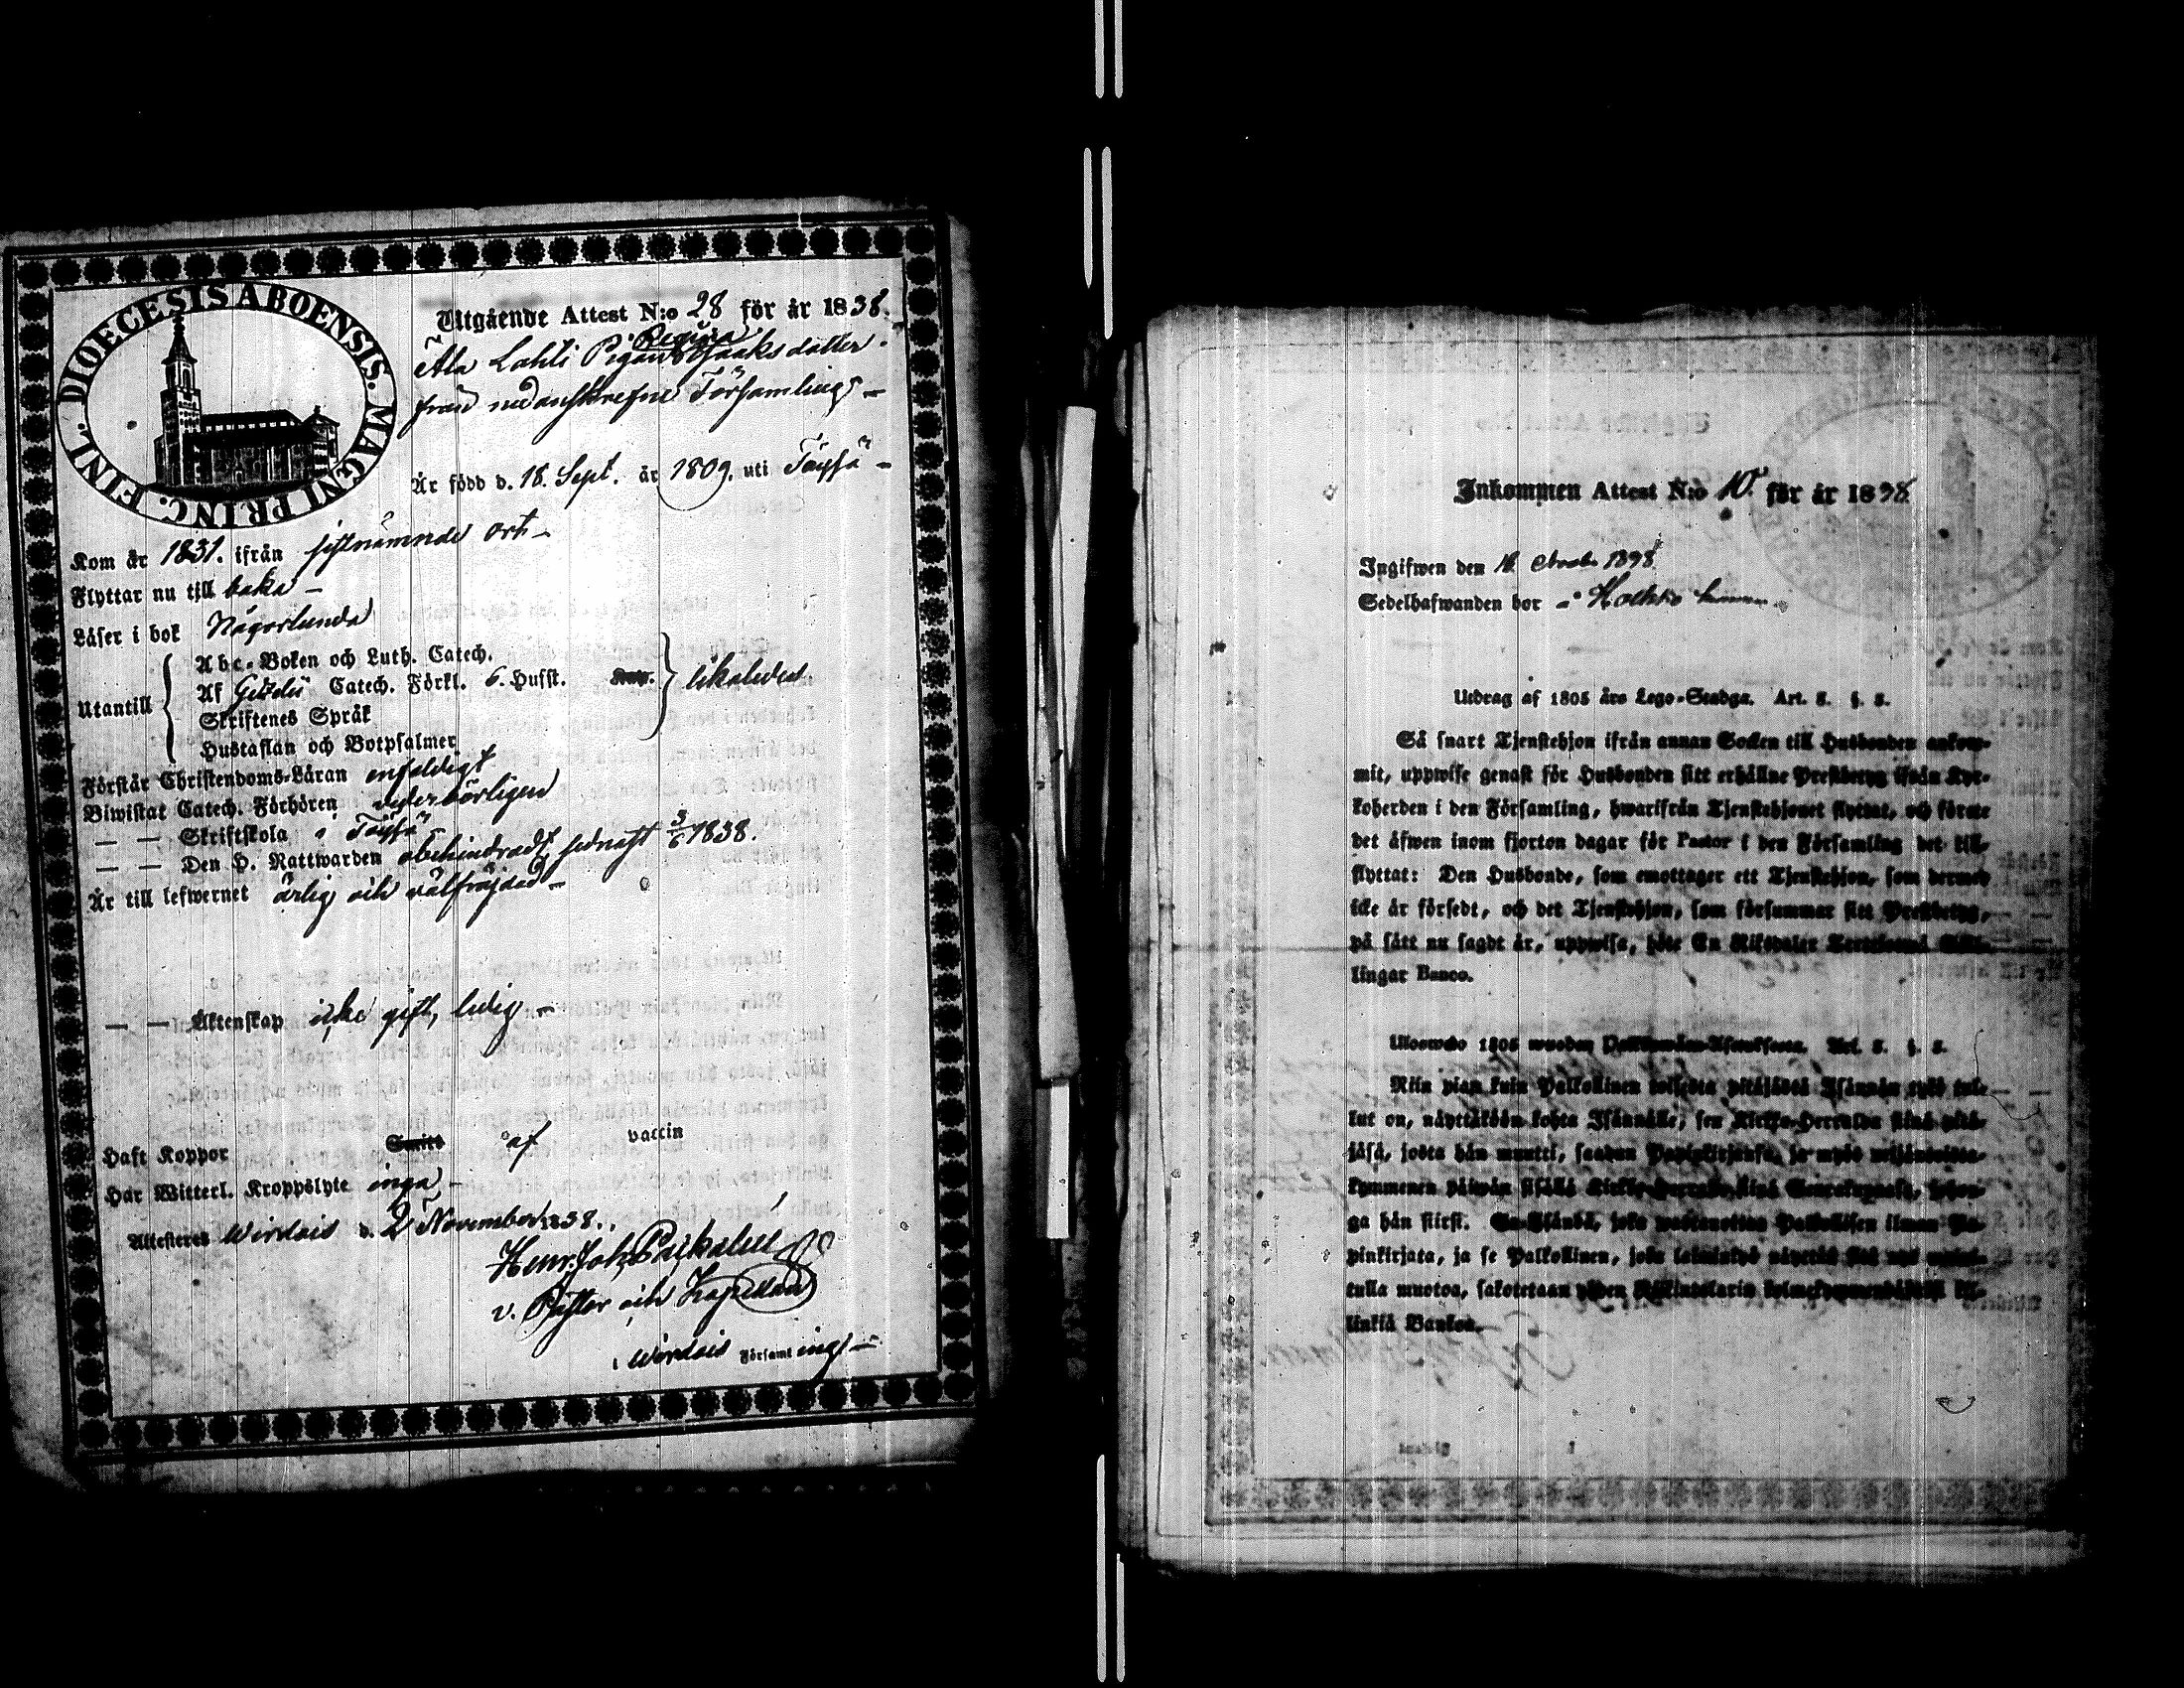 DIOECESIS ABOENSIS. MAGNI PRINC. FINL.
Utgående Attest N:o 28 för år 1838.
Regina
Ala Lahti Pigan Isaksdotter
från nedanskrefne Församling –
Är född d. 18. Sept. år 1809. uti Töysä –
Kom år 1831. ifrån sistnämnde ort –
Flyttar nu till baka –
Läser i bok Någorlunda
Utantill
Abc-Boken och Luth. Catech.
Af Catech. Förkl. 6. Husst. likaledes
Skriftenes Språk
Hustaflan och Botpsalmer
Förstår Christendoms-Läran enfaldigt
Biwistat Catech. Förhören vederbörligen
— — Skriftskola i Töysä –
— — Den H. Nattwarden obehindradt sednast 3/6 1838.
Är till lefwernet ärlig och välfräjdad –
— — Äktenskap icke gift, ledig –
Haft Koppor af vaccin
Har Witterl. Kroppslyte inga –
Attesteras Wirdois d. 2 November 1838.
Henr. Joh.
v. Pastor och Kapellan
i Wirdois Församlings –
Inkommen Attest N:o 10. för år 1838
Ingifwen den
Sedelhafwanden bor
Utdrag af 1805 års Lego-Stadga. Art. 5. §. 5.
Så snart Tjenstehjon ifrån annan Socken till Husbonden ankom-
mit, uppwise genast för Husbonden sitt erhållne Prestbetyg ifrån Kyr-
koherden i den Församling, hwarifrån Tjenstehjonet flyttat, och förete
det äfwen inom fjorton dagar för Pastor i den Församling det till-
flyttat: Den Husbonde, som emottager ett Tjenstehjon, som dermed
icke är försedt, och det Tjenstehjon, som försummar sitt Prestbetyg,
på sätt nu sagdt är, uppwisa, böte En Riksdaler
lingar Banco.
Ulosweto 1805 wuoden Art. 5. §. 5.
Niin pian kuin Palkollinen toisesta pitäjästä Isännän työö tul-
lut on, näyttäköön kohta Isännälle, sen Kirkko-Herralda siinä pitä-
jäsä, josta hän muutti, saadun Papinkirjansa, ja myös
kymmenen päiwän sisällä
ga hän siirsi. joka wastanottaa Palkollisen ilman Pa-
pinkirjata, ja se Palkollinen, joka
tulla muotoa, sakotetaan yhden
linkiä Bankoa.